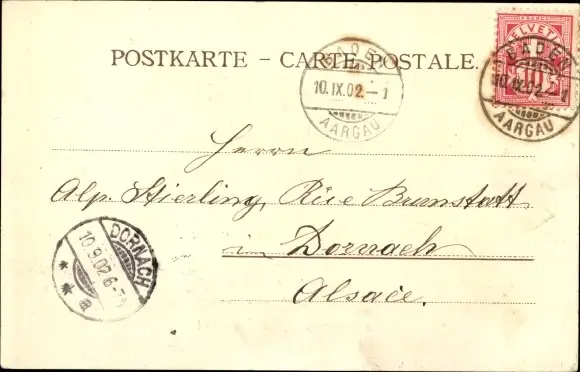 POSTKARTE – CARTE POSTALE.
HELVETIA
10
BADEN
10.IX.02.–1
AARGAU
BADEN
10.IX.02.–1
AARGAU
Herrn
Alp. Stierling, Rüe Brunstatt
in Dornach
Alsace.
DORNACH
10.9.02.6-7
* * a